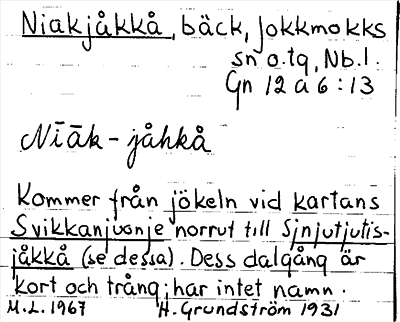 Niakjåkkå, bäck, Jokkmokks
sn o. tg, Nb. l.
Gn 12 a 6 : 13
Nīāk - jåhkå
Kommer från jökeln vid kartans
Svikkanjuonje norrut till Sjnjutjutis-
jåkkå (se dessa). Dess dalgång är
kort och trång; har intet namn.
M. L. 1967 H. Grundström 1931